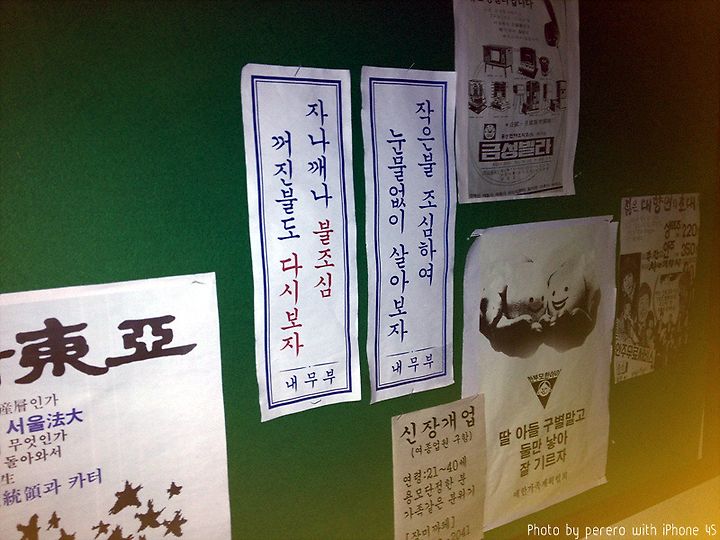 東亞
産層인가
서울法大
무엇인가
돌아와서
統領과 카터
자나깨나 불조심
꺼진불도 다시보자
내무부
작은불 조심하여
눈물없이 살아보자
내무부
금성빌라
신장개업
(여종업원 구함)
연령:21~40세
용모단정한 분
가족같은 분위기
[장미까페]
2041
딸 아들 구별말고
둘만 낳아
잘 기르자
대한가족계획협회
220
350
안주무료서비스
Photo by perero with iPhone 4S